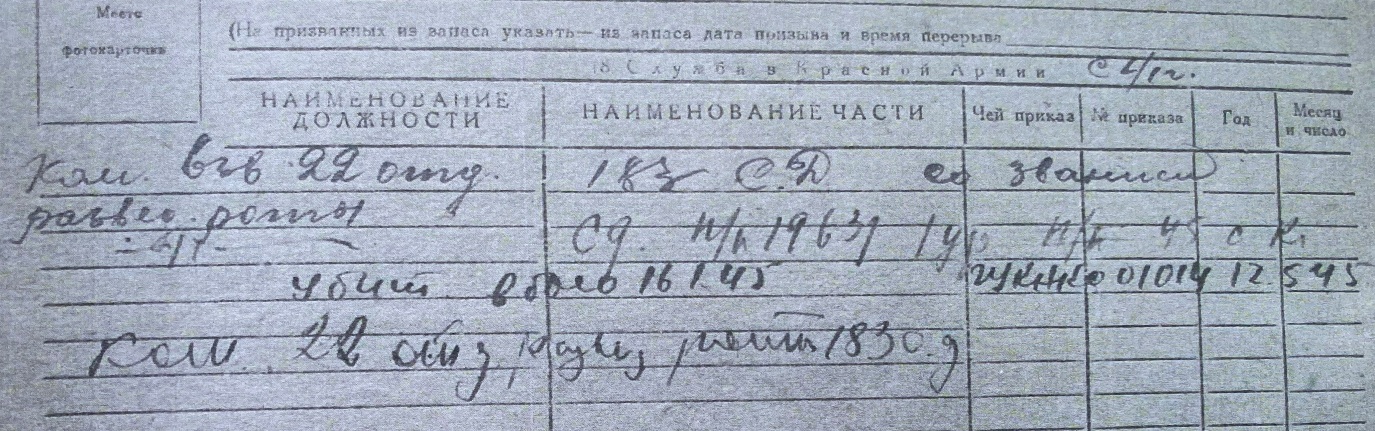 Место
фотокарточки
(На призванных из запаса указать— из запаса дата призыва и время перерыва
18 Служба в Красной Армии С 41г.
НАИМЕНОВАНИЕ ДОЛЖНОСТИ НАИМЕНОВАНИЕ ЧАСТИ Чей приказ № приказа Год Месяц и число
Ком. взв 22 отд. 183 С.Д.
развед. роты
убит в бою 16 1.45 ГУК НКО 01014 12 5 45
Ком. 22 отд развед роты 183 с.д